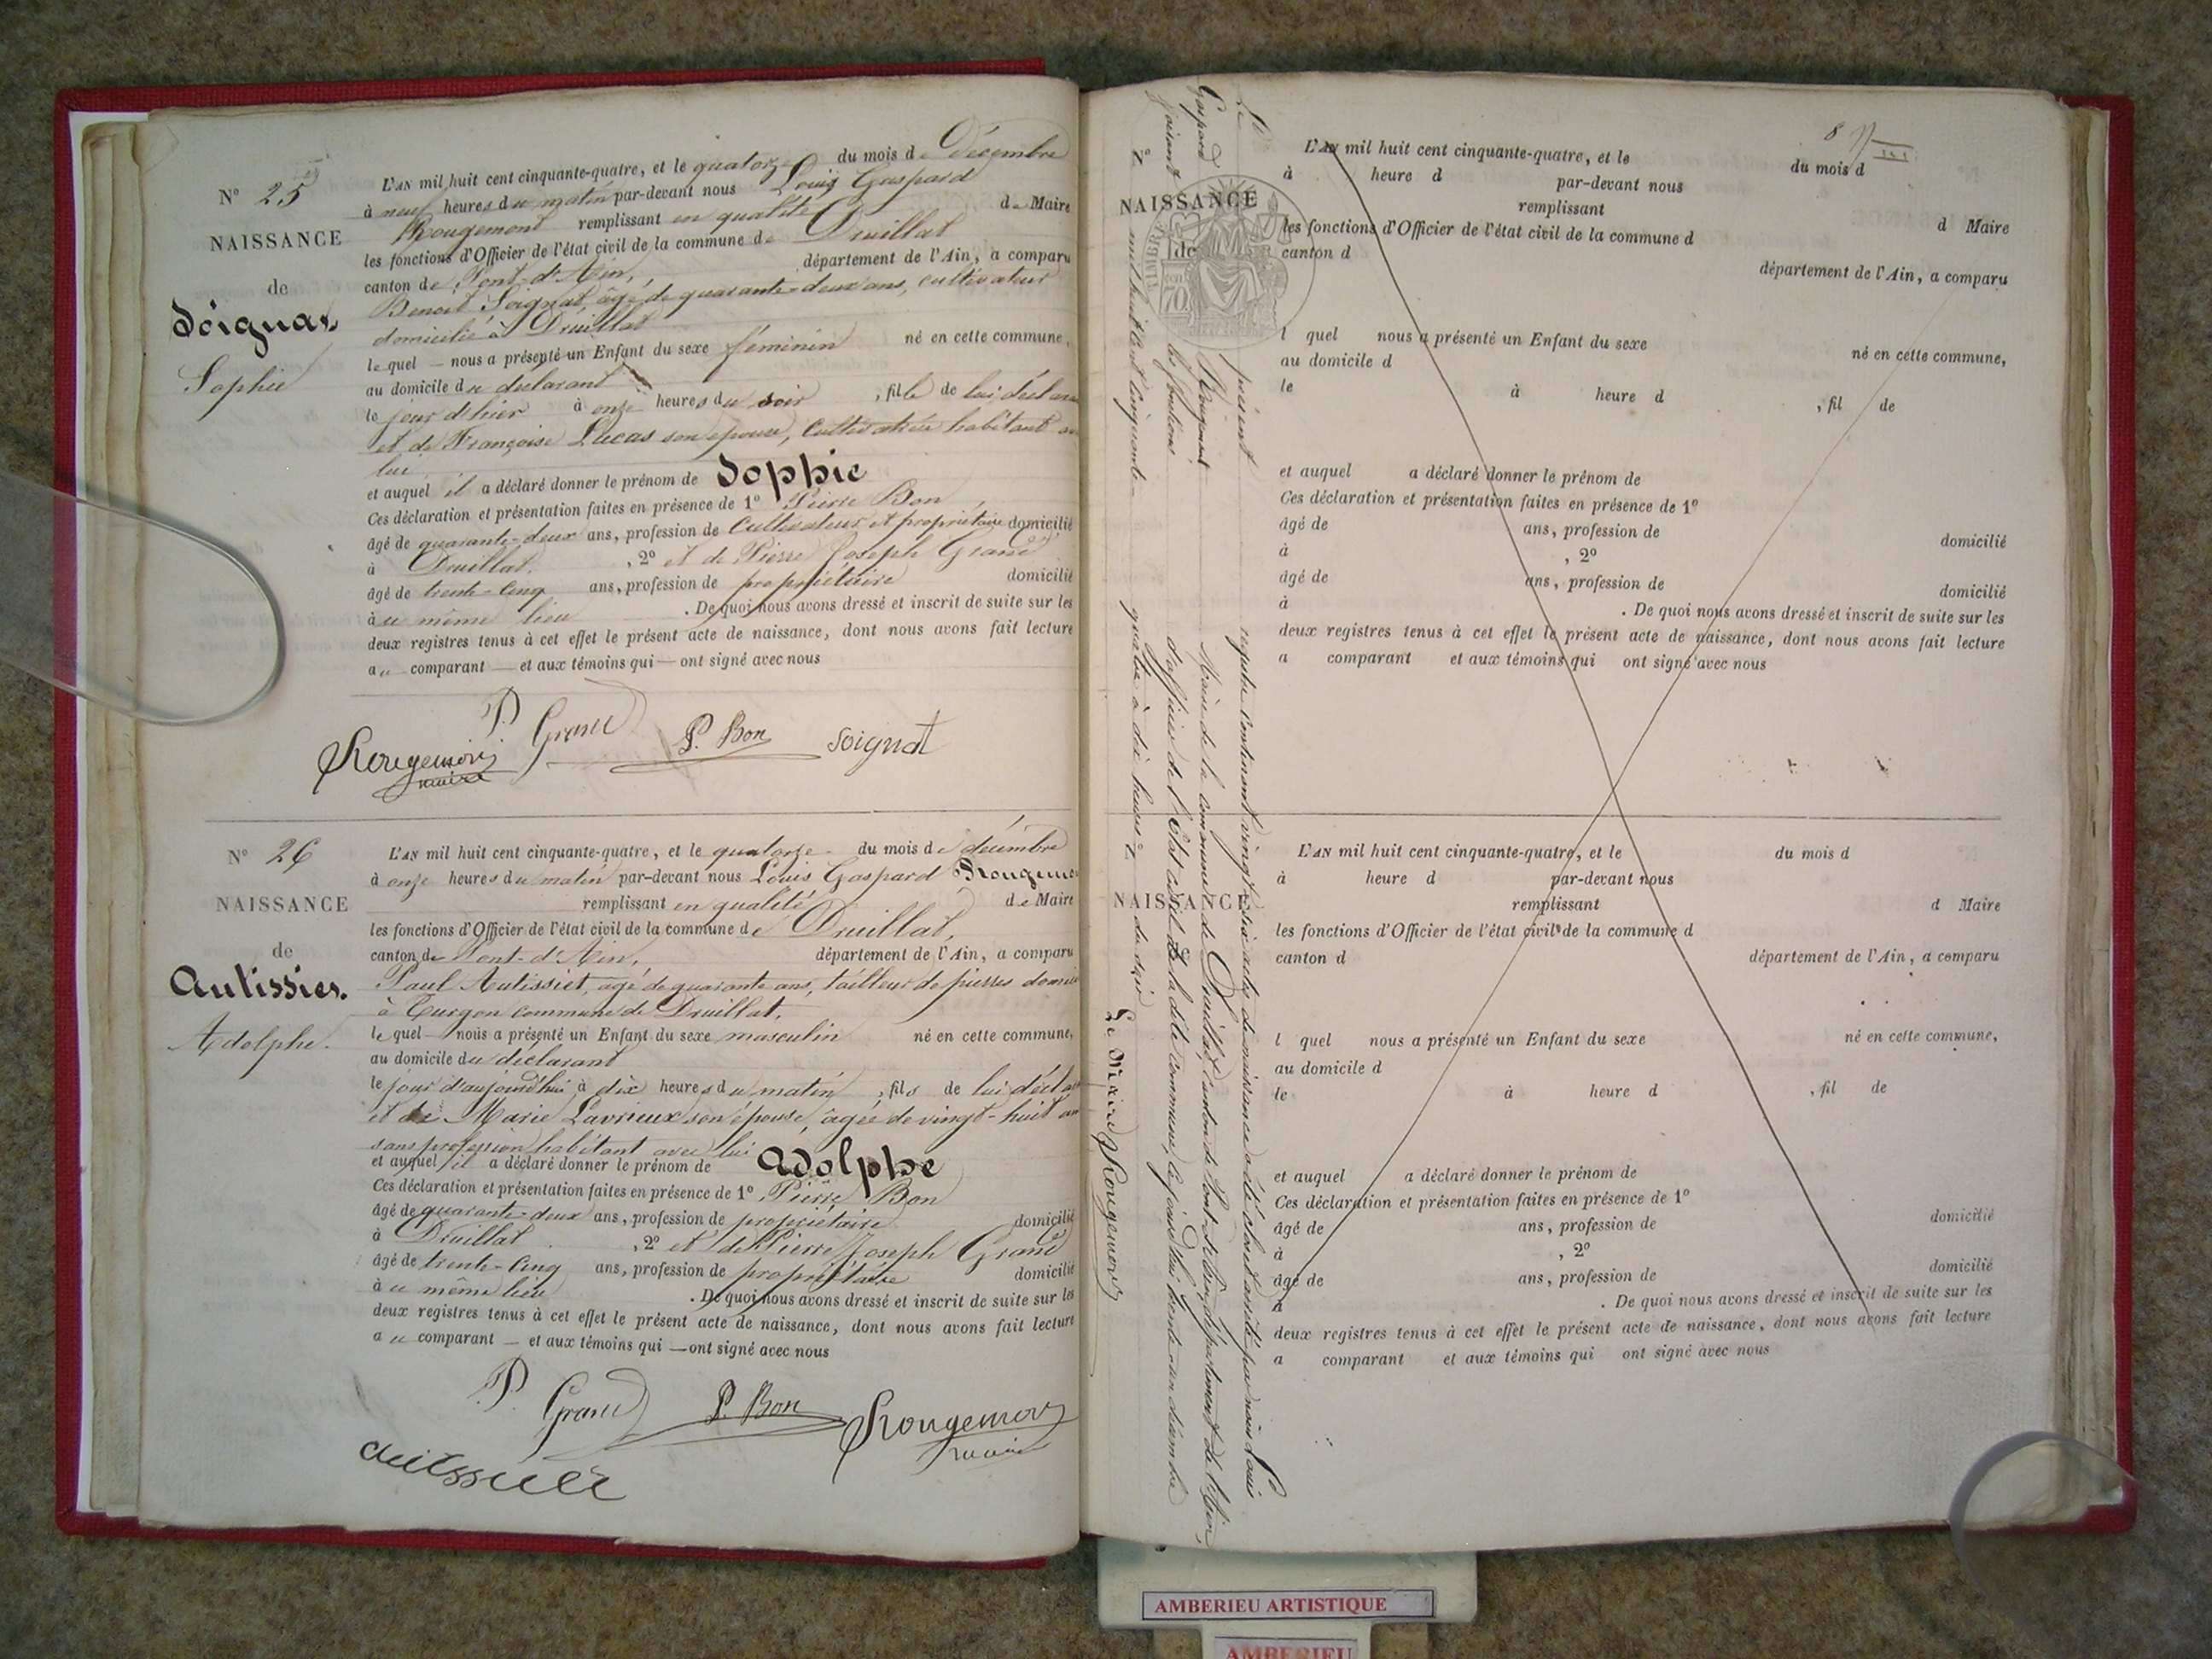 N° 25
NAISSANCE
de
Soignat
Sophie
L'AN mil huit cent cinquante-quatre, et le quatorze du mois de Décembre
à neuf heures du matin par-devant nous Louis Gaspard
Rougemont remplissant en qualité de Maire
les fonctions d'Officier de l'état civil de la commune de Druillat
canton de Pont-d'Ain, département de l'Ain, a comparu
Benoit Soignat, âgé de quarante-deux ans, cultivateur
domicilié à Druillat
lequel nous a présenté un Enfant du sexe féminin né en cette commune,
au domicile du déclarant
le jour d'hier à onze heures du soir, fille de lui déclarant
et de Françoise Lucas son épouse, cultivatrice habitant
lui
et auquel il a déclaré donner le prénom de Sophie
Ces déclaration et présentation faites en présence de 1° Pierre Bon
âgé de quarante-deux ans, profession de Cultivateur et propriétaire domicilié
à Druillat, 2° et de Pierre Joseph Grand
âgé de trente-cinq ans, profession de propriétaire domicilié
à u même lieu. De quoi nous avons dressé et inscrit de suite sur les
deux registres tenus à cet effet le présent acte de naissance, dont nous avons fait lecture
au comparant — et aux témoins qui — ont signé avec nous
P. Grand P. Bon Soignat
Rougemont
maire
N° 26
NAISSANCE
de
Autissier.
Adolphe.
L'AN mil huit cent cinquante-quatre, et le quatorze du mois de décembre
à onze heures du matin par-devant nous Louis Gaspard Rougemont
remplissant en qualité de Maire
les fonctions d'Officier de l'état civil de la commune de Druillat,
canton de Pont-d'Ain, département de l'Ain, a comparu
Paul Autissier, âgé de quarante ans, tailleur de pierres
à Turgon commune de Druillat,
lequel nous a présenté un Enfant du sexe masculin né en cette commune,
au domicile du déclarant
le jour d'aujourd'hui, à dix heures du matin, fils de lui
et de Marie Lavrieux son épouse, âgée de vingt-huit
sans profession habitant avec lui
et auquel il a déclaré donner le prénom de Adolphe
Ces déclaration et présentation faites en présence de 1° Pierre Bon
âgé de quarante-deux ans, profession de propriétaire domicilié
à Druillat, 2° et de Pierre Joseph Grand
âgé de trente-cinq ans, profession de propriétaire domicilié
à u même lieu. De quoi nous avons dressé et inscrit de suite sur les
deux registres tenus à cet effet le présent acte de naissance, dont nous avons fait lecture
au comparant — et aux témoins qui — ont signé avec nous
P. Grand P. Bon Rougemont
maire
autissier
8
NAISSANCE
de
L'AN mil huit cent cinquante-quatre, et le du mois d
à heure d par-devant nous
remplissant d Maire
les fonctions d'Officier de l'état civil de la commune d
canton d département de l'Ain, a comparu
l quel nous a présenté un Enfant du sexe né en cette commune,
au domicile d
le à heure d , fil de
et auquel a déclaré donner le prénom de
Ces déclaration et présentation faites en présence de 1°
âgé de ans, profession de domicilié
à , 2°
âgé de ans, profession de domicilié
à . De quoi nous avons dressé et inscrit de suite sur les
deux registres tenus à cet effet le présent acte de naissance, dont nous avons fait lecture
a comparant et aux témoins qui ont signé avec nous
NAISSANCE
L'AN mil huit cent cinquante-quatre, et le du mois d
à heure d par-devant nous
remplissant d Maire
les fonctions d'Officier de l'état civil de la commune d
canton d département de l'Ain, a comparu
l quel nous a présenté un Enfant du sexe né en cette commune,
au domicile d
le à heure d , fil de
et auquel a déclaré donner le prénom de
Ces déclaration et présentation faites en présence de 1°
âgé de ans, profession de domicilié
à , 2°
âgé de ans, profession de domicilié
à . De quoi nous avons dressé et inscrit de suite sur les
deux registres tenus à cet effet le présent acte de naissance, dont nous avons fait lecture
a comparant et aux témoins qui ont signé avec nous
Le présent registre contenant vingt-six actes de naissance a été clos et arrêté par nous Louis
Gaspard Rougemont Maire de la commune de Druillat, canton de Pont-d'Ain, département de l'Ain,
faisant les fonctions d'officier de l'état civil de la dite commune, le jourd'hui trente-un décembre
mil huit cent cinquante-quatre à dix heures du soir
Le Maire Rougemont
AMBERIEU ARTISTIQUE
AMBERIEU